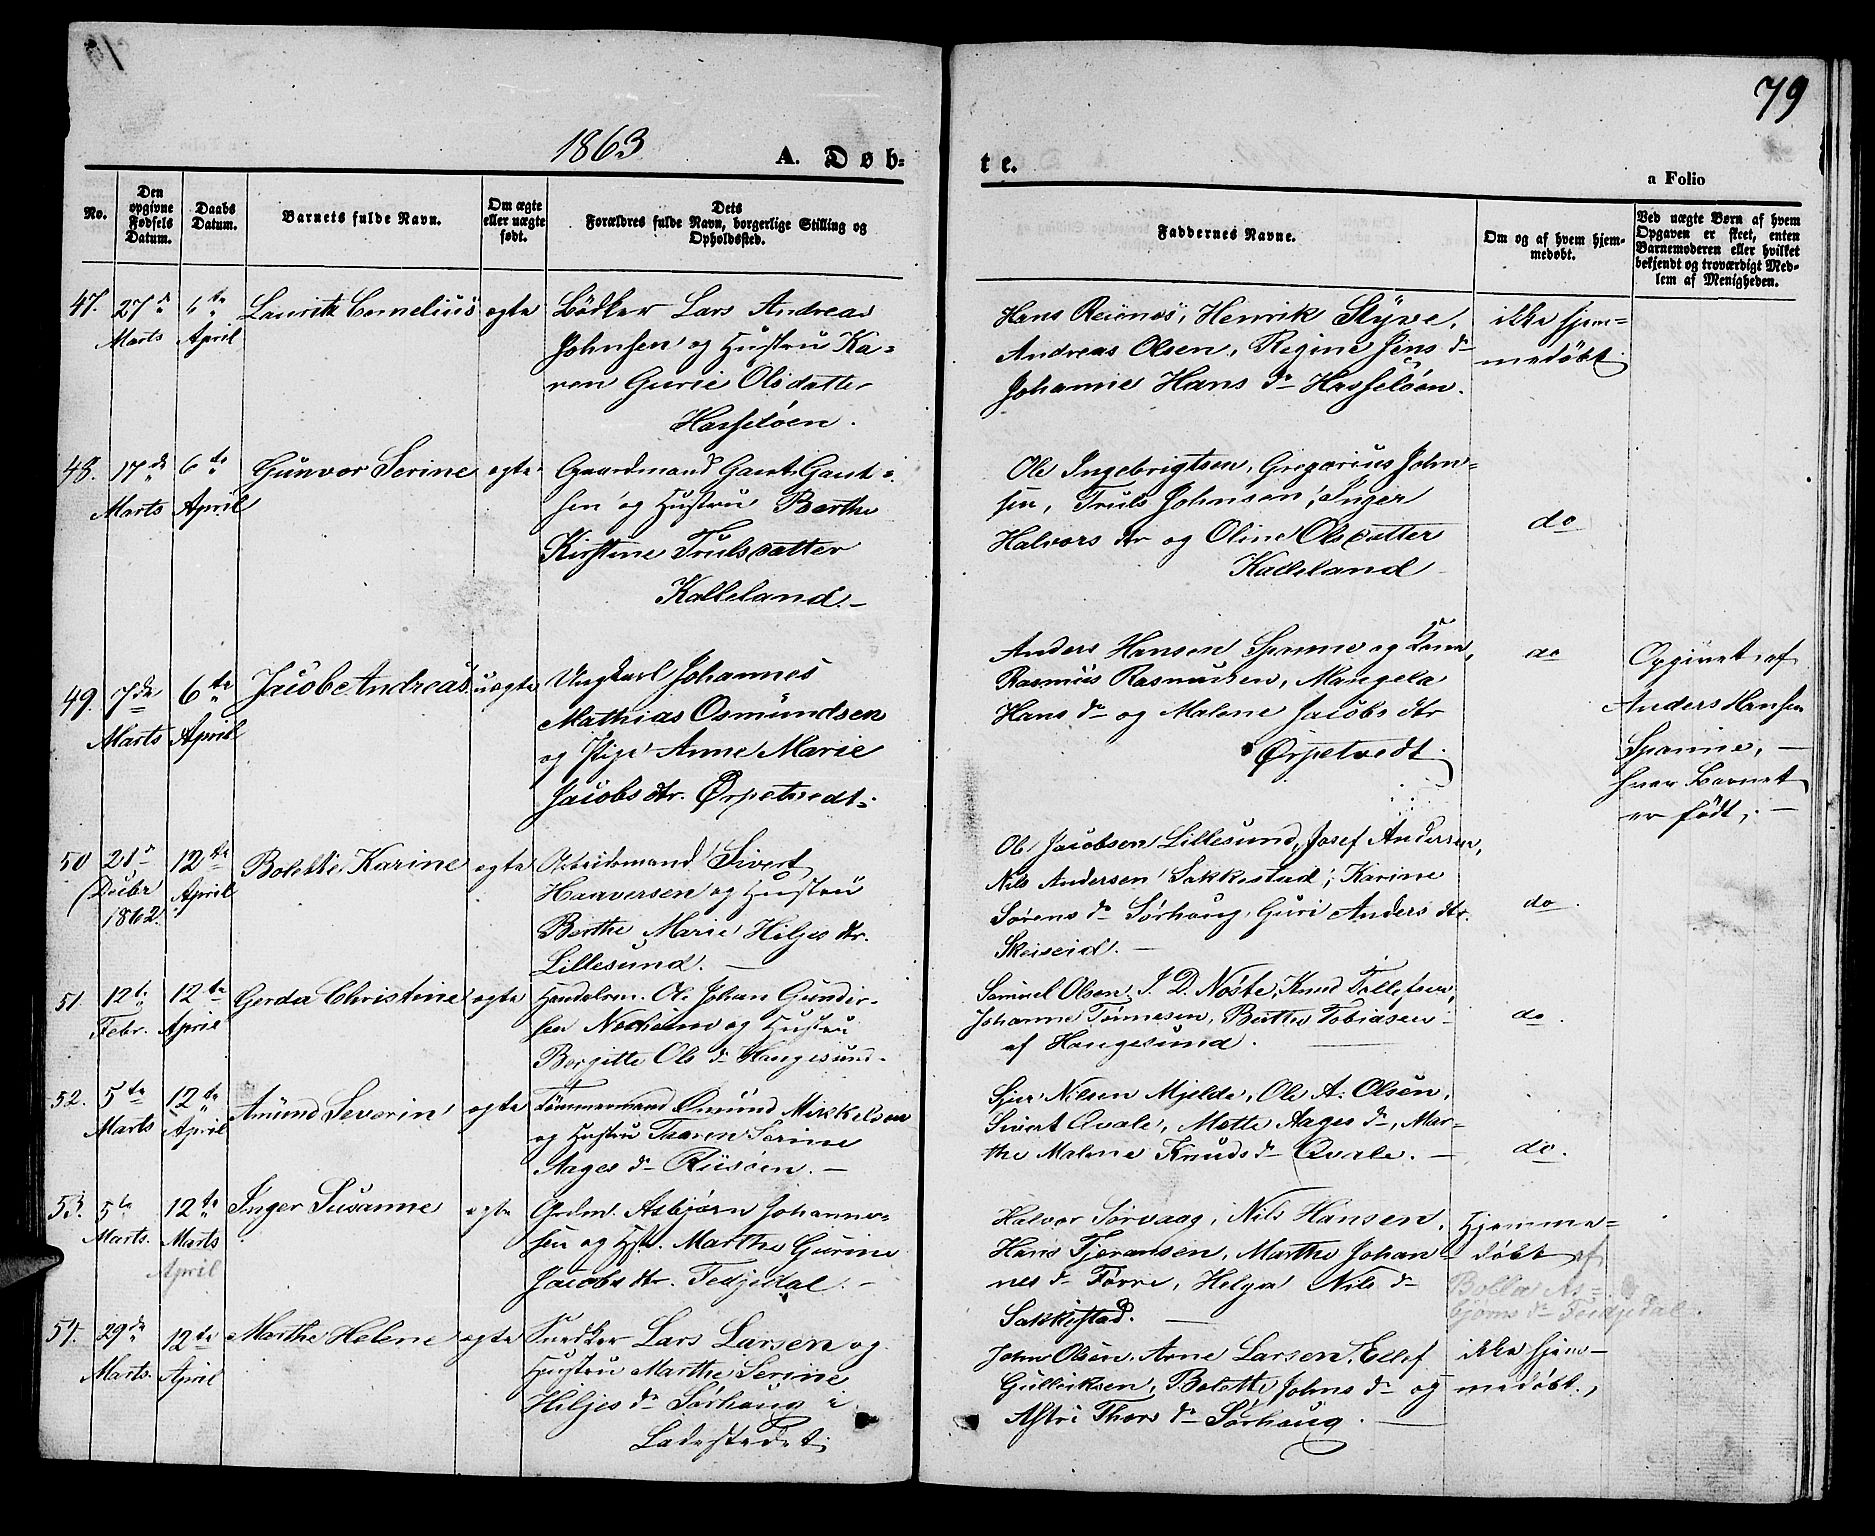 79
1863
A. Døb=
te.
a Folio
No.
Den
opgivne
Fødsels
Datum.
Daabs
Datum.
Barnets fulde Navn.
Om ægte
eller uægte
født.
Dets
Forældres fulde Navn, borgerlige Stilling og
Opholdssted.
Faddernes Navne.
Om og af hvem hjem-
medøbt.
Ved uægte Børn af hvem
Opgaven er skeet, enten
Barnemoderen eller hvilket
bekjendt og troværdigt Med-
lem af Menigheden.
47. 27de
Marts
6te
April
Lauritz Cornelius
ægte
Bødker Lars Andreas
Johnsen og Hustru Ka-
ren Gurie Olsdatter
Hasseløen.
Hans Reienæs, Henrik Styve,
Andreas Olsen, Regine Jens dr
Johanne Hans dr Hasseløen.
ikke hjem=
medøbt.
48. 17de
Marts
6te
April
Gunvor Serine
ægte
Gaardmand Gaut Gaut-
sen og Hustru Berthe
Kirstine Trulsdatter
Kalleland.-
Ole Ingebrigtsen, Gregorius John=
sen, Truls Johnsen, Inger
Halvors dtr og Oline Olsdatter
Kalleland
do
49. 7de
Marts
6te
April
Jacob Andreas
uægte
Ungkarl Johannes
Mathias Osmundsen
og Pige Anne Marie
Jacobs dtr. Ørpetvedt.
Anders Hansen Spanne og Kone,
Rasmus Rasmussen, Mangela
Hans dr og Malene Jacobs dtr
Ørpetvedt.
do
Opgivet af
Anders Hansen
Spanne, -
hvor Barnet
er født, -
50 21de
Decbr
1862.
12te
April
Bolette Karine
ægte
Arbeidsmand Sivert
Haaversen og Hustru
Berthe Marie Hiljes dtr.
Lillesund. -
Ole Jacobsen Lillesund, Josef Andersen,
Nils Andersen Sakkestad, Karine
Sørens dr Sørhaug, Guri Anders dtr.
Skeiseid. -
do.
51. 12te
Febr.
12te
April
Gerda Christine
ægte
Handelsm. Ole Johan Gunder-
sen og Hustru
Bergitte Ols dr Haugesund.
Samuel Olsen, J. D. Nøste, Knud Tollefsen,
Johanne Tønnesen, Berthe Tobiasen
af Haugesund.
do.
52. 5te
Marts
12te
April
Amund Severin
ægte
Tømmermand Omund Mikkelsen
og Hustru Tharen Serine
Aages dr Riisøen. -
Sjur Nilsen Mjelde, Ole A. Olsen,
Sivert Qvale, Mette Aages dr, Mar-
the Malene Knuds dr Qvale. -
do.
53. 5te
Marts.
12te
Marts
April
Inger Susanne
ægte
Grdm. Asbjørn Johannes-
sen og Hst. Marthe Gurine
Jacobs dtr. Tedjedal. -
Halvor Sørvaag, Nils Hansen,
Hans Tjeransen, Marthe Johan-
nes dr Førre, Helga Nils dr
Sakkestad. -
Hjemme=
døbt af
Bolla As=
bjørns dr Feidjedal.
54. 29de
Marts.
12te
April
Marthe Helene
ægte
Snedker Lars Larsen og
Hustru Marthe Serine
Hiljes dr Sørhaug i
Ladestedet.
John Olsen, Arne Larsen, Ellef
Gulliksen, Bolette Johns dr og
Astri Thors dr Sørhaug. -
ikke hjem-
medøbt.,